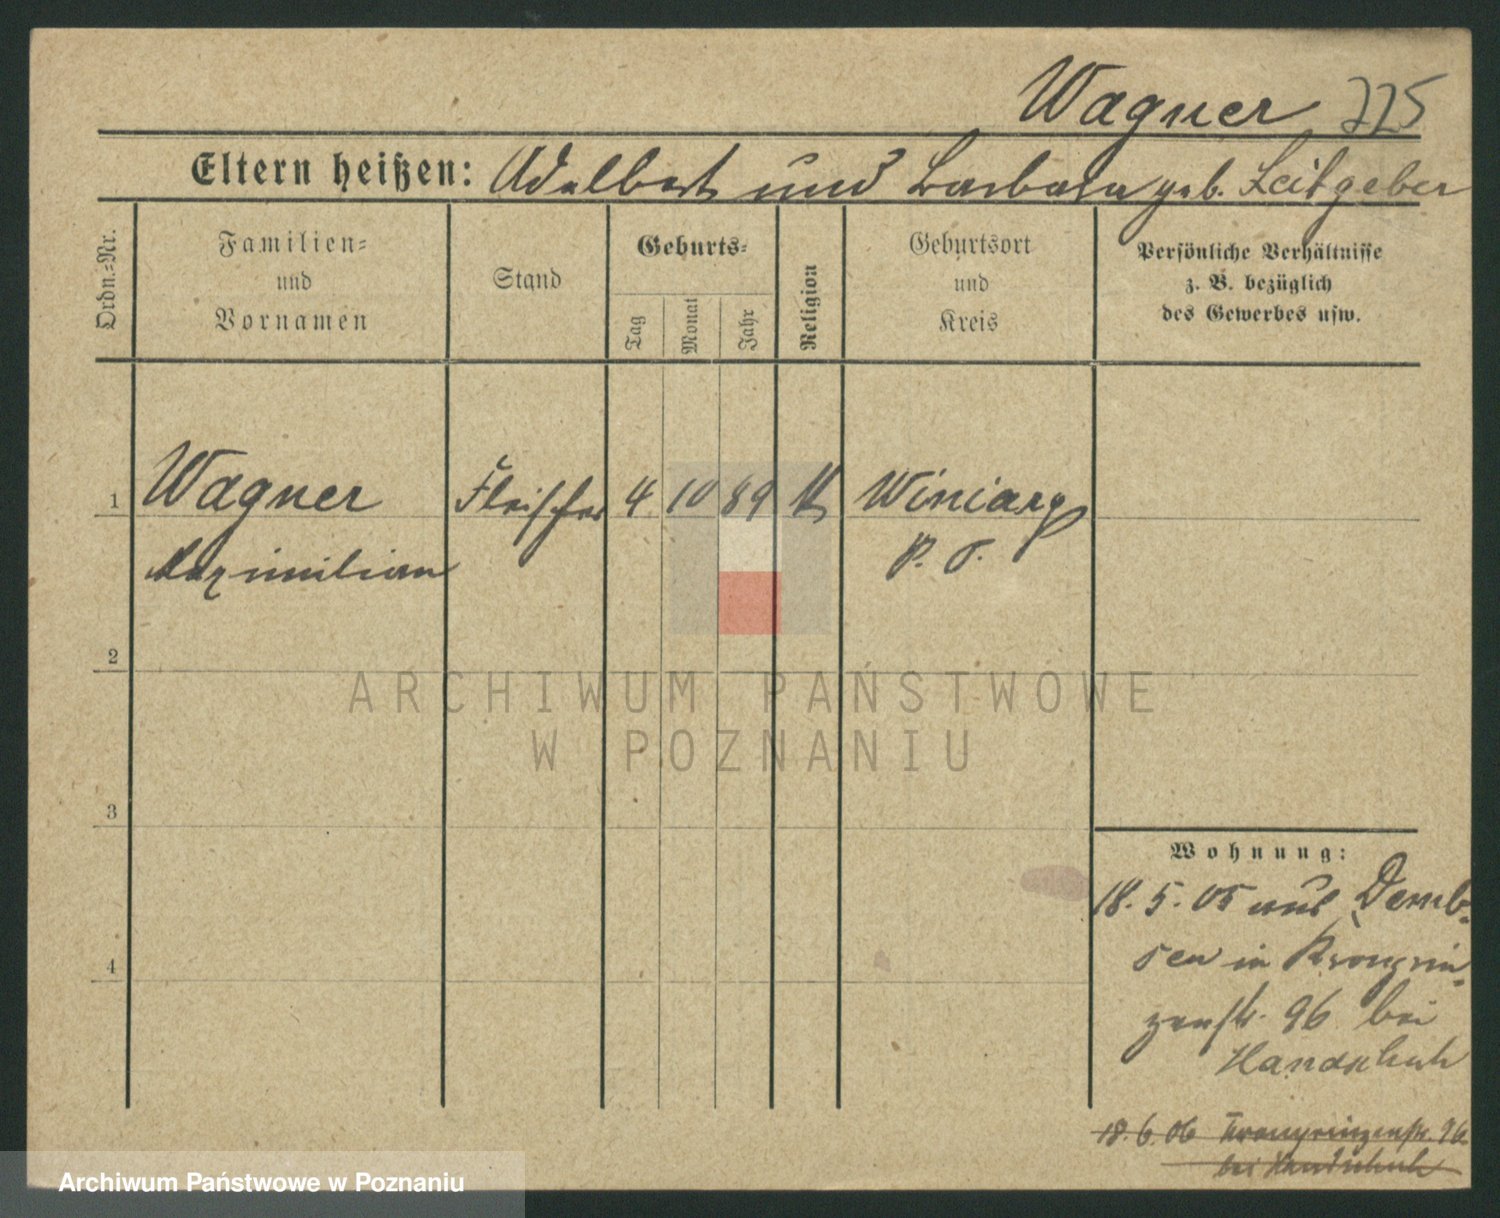 Wagner 225
Eltern heißen: Adalbert und Barbara geb. Leitgeber
Ordn.-Nr.
Familien-
und
Vornamen
Stand
Geburts-
Tag
Monat
Jahr
Religion
Geburtsort
und
Kreis
Persönliche Verhältnisse
z. B. bezüglich
des Gewerbes usw.
1 Wagner Fleischer 4 10 89 K Winiary
Maximilian P. O.
2
3
4
Wohnung:
18. 5. 05 aus Demb-
sen in Kronprin-
zenstr. 96 bei
Handschuh
18. 6. 06 Kronprinzenstr. 96
bei Handschuh
ARCHIWUM PAŃSTWOWE
W POZNANIU
Archiwum Państwowe w Poznaniu